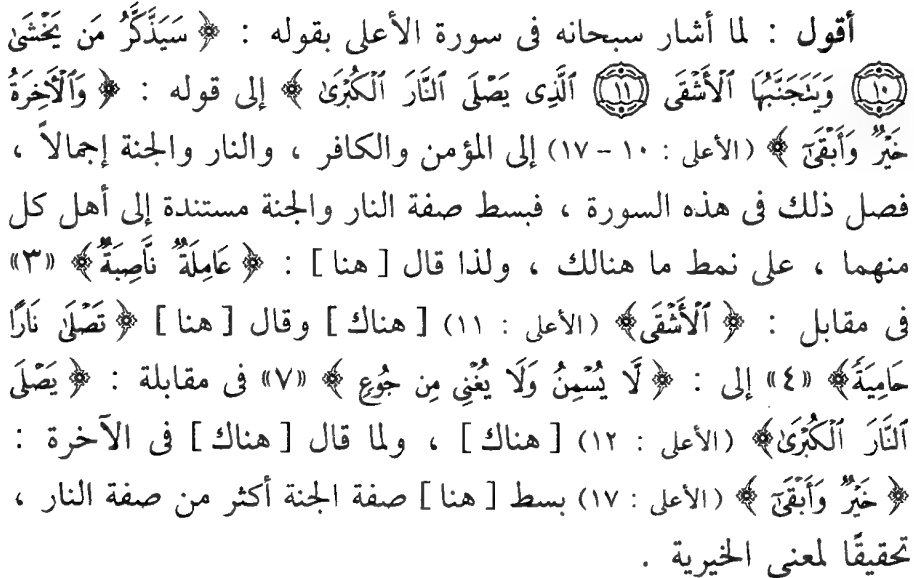 أقول : لما أشار سبحانه فى سورة الأعلى بقوله : ﴿ سَيَذَّكَّرُ مَن يَخْشَىٰ
﴿١٠﴾ وَيَتَجَنَّبُهَا ٱلْأَشْقَى ﴿١١﴾ ٱلَّذِى يَصْلَى ٱلنَّارَ ٱلْكُبْرَىٰ ﴾ إلى قوله : ﴿ وَٱلْآخِرَةُ
خَيْرٌ وَأَبْقَىٰٓ ﴾ (الأعلى : ١٠ – ١٧) إلى المؤمن والكافر ، والنار والجنة إجمالاً ،
فصل ذلك فى هذه السورة ، فبسط صفة النار والجنة مستندة إلى أهل كل
منهما ، على نمط ما هنالك ، ولذا قال [ هنا ] : ﴿ عَامِلَةٌ نَّاصِبَةٌ ﴾ «٣»
فى مقابل : ﴿ ٱلْأَشْقَى ﴾ (الأعلى : ١١) [ هناك ] وقال [ هنا ] ﴿ تَصْلَىٰ نَارًا
حَامِيَةً ﴾ «٤» إلى : ﴿ لَّا يُسْمِنُ وَلَا يُغْنِى مِن جُوعٍ ﴾ «٧» فى مقابلة : ﴿ يَصْلَى
ٱلنَّارَ ٱلْكُبْرَىٰ ﴾ (الأعلى : ١٢) [ هناك ] ، ولما قال [ هناك ] فى الآخرة :
﴿ خَيْرٌ وَأَبْقَىٰٓ ﴾ (الأعلى : ١٧) بسط [ هنا ] صفة الجنة أكثر من صفة النار ،
تحقيقًا لمعنى الخيرية .